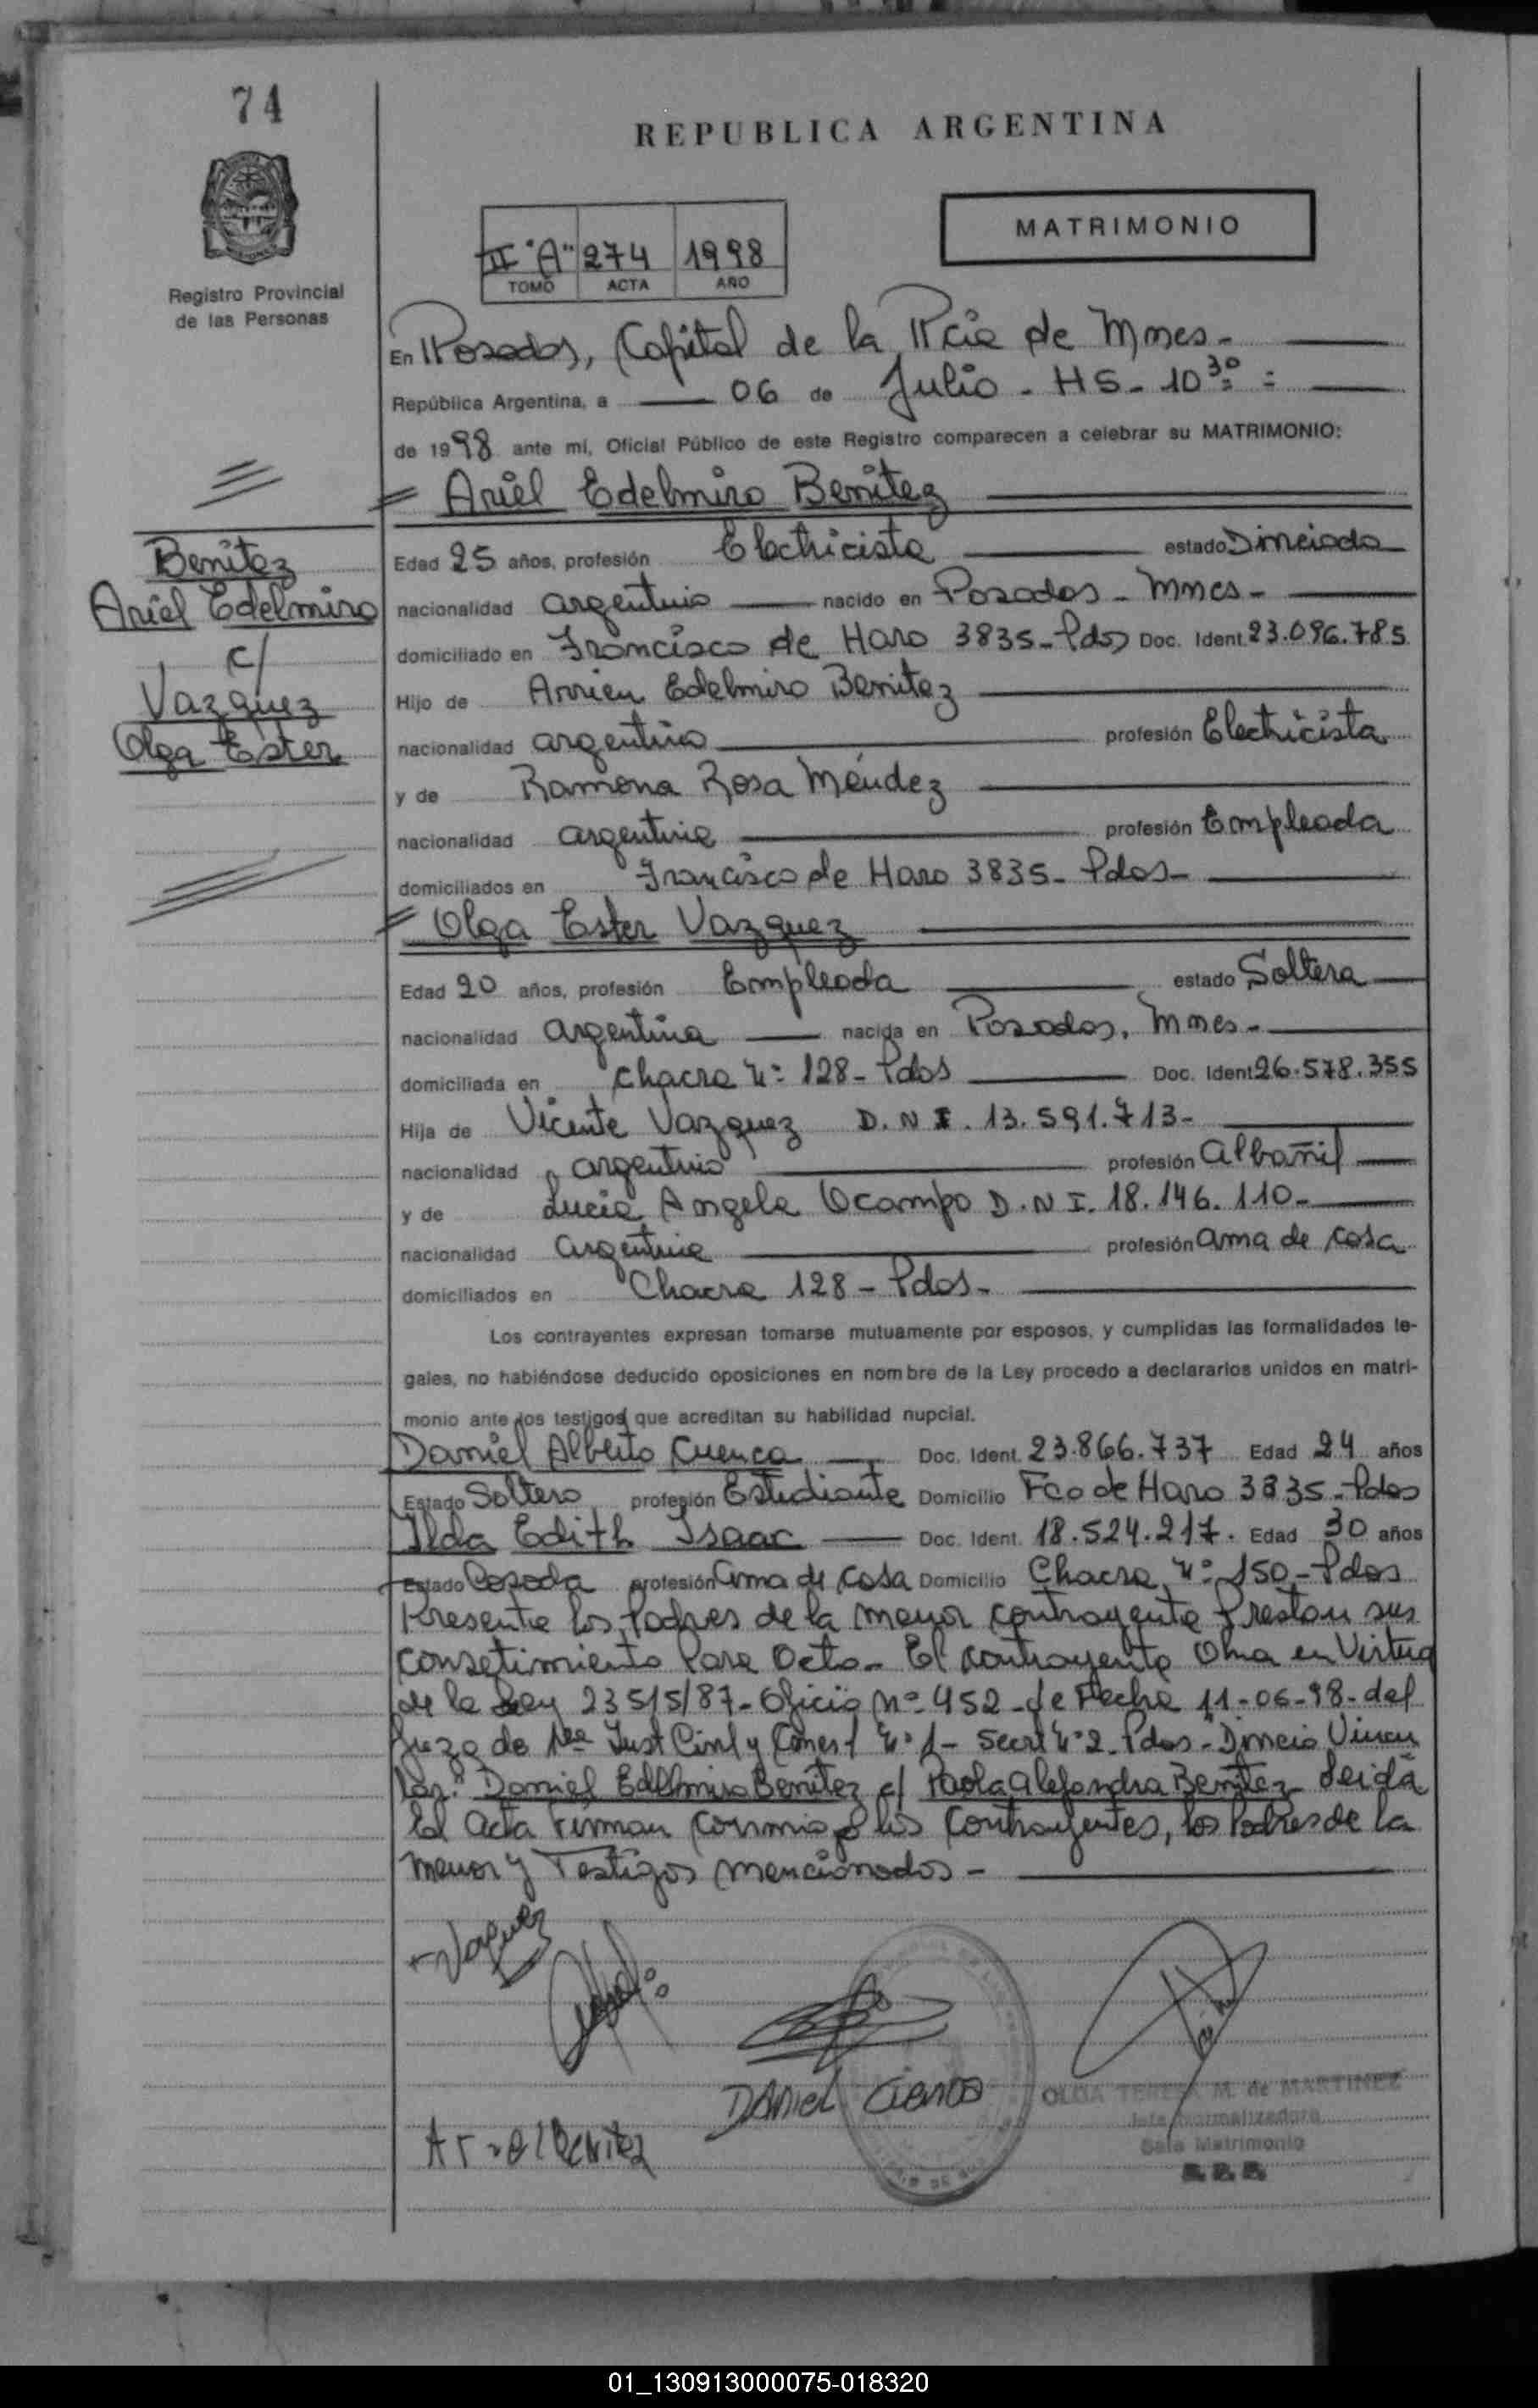 74
REPUBLICA ARGENTINA
MATRIMONIO
II "A" 274 1998
TOMO ACTA AÑO
Registro Provincial
de las Personas
En Posadas, Capital de la Pcia de Mnes-
República Argentina, a 06 de Julio - HS- 10 30
de 1998 ante mi, Oficial Público de este Registro comparecen a celebrar su MATRIMONIO:
Ariel Edelmiro Benitez
Benitez
Ariel Edelmiro
c/
Vazquez
Olga Ester
Edad 25 años, profesión Electricista estado Divorciado
nacionalidad argentino nacido en Posadas - Mnes-
domiciliado en Francisco de Haro 3835-Pdas Doc. Ident. 23.096.785.
Hijo de Edelmiro Benitez
nacionalidad argentino profesión Electricista
y de Ramona Rosa Méndez
nacionalidad argentina profesión Empleada
domiciliados en Francisco de Haro 3835- Pdas-
Olga Ester Vazquez
Edad 20 años, profesión Empleada estado Soltera
nacionalidad argentina nacida en Posadas, Mnes-
domiciliada en Chacra Nº 128- Pdas Doc. Ident 26.578.355
Hija de Vicente Vazquez D.N.I. 13.591.713-
nacionalidad argentino profesión albañil
y de Lucia Angela Ocampo D.N.I. 18.146.110-
nacionalidad argentina profesión ama de casa
domiciliados en Chacra 128 - Pdas-
Los contrayentes expresan tomarse mutuamente por esposos, y cumplidas las formalidades le-
gales, no habiéndose deducido oposiciones en nombre de la Ley procedo a declararlos unidos en matri-
monio ante los testigos que acreditan su habilidad nupcial.
Daniel Alberto Cuenca Doc. Ident. 23.866.737 Edad 24 años
Estado Soltero profesión Estudiante Domicilio Fco de Haro 3835-Pdas
Ilda Edith Isaac Doc. Ident. 18.524.217. Edad 30 años
Estado Casada profesión ama de casa Domicilio Chacra Nº 150-Pdas
Presente los Padres de la menor contrayente Prestan sus
consetimiento Para Acto- El contrayente Obra en Virtud
de la Ley 23515/87- Oficio Nº 452-de Fecha 11-06-98-del
de 1ra Inst Civil y Nº 1- Secrt Nº 2. Pdas-
lar." Daniel Edelmiro Benitez c/ Paola Alejandra Benitez- Leida
El acta Firman conmigo los Contrayentes, los Padres de la
menor y Testigos mencionados-
Vazquez
DANiel Cuenca
Ariel Benitez
OLGA TERESA M. de MARTINEZ
Sala Matrimonio
01_130913000075-018320